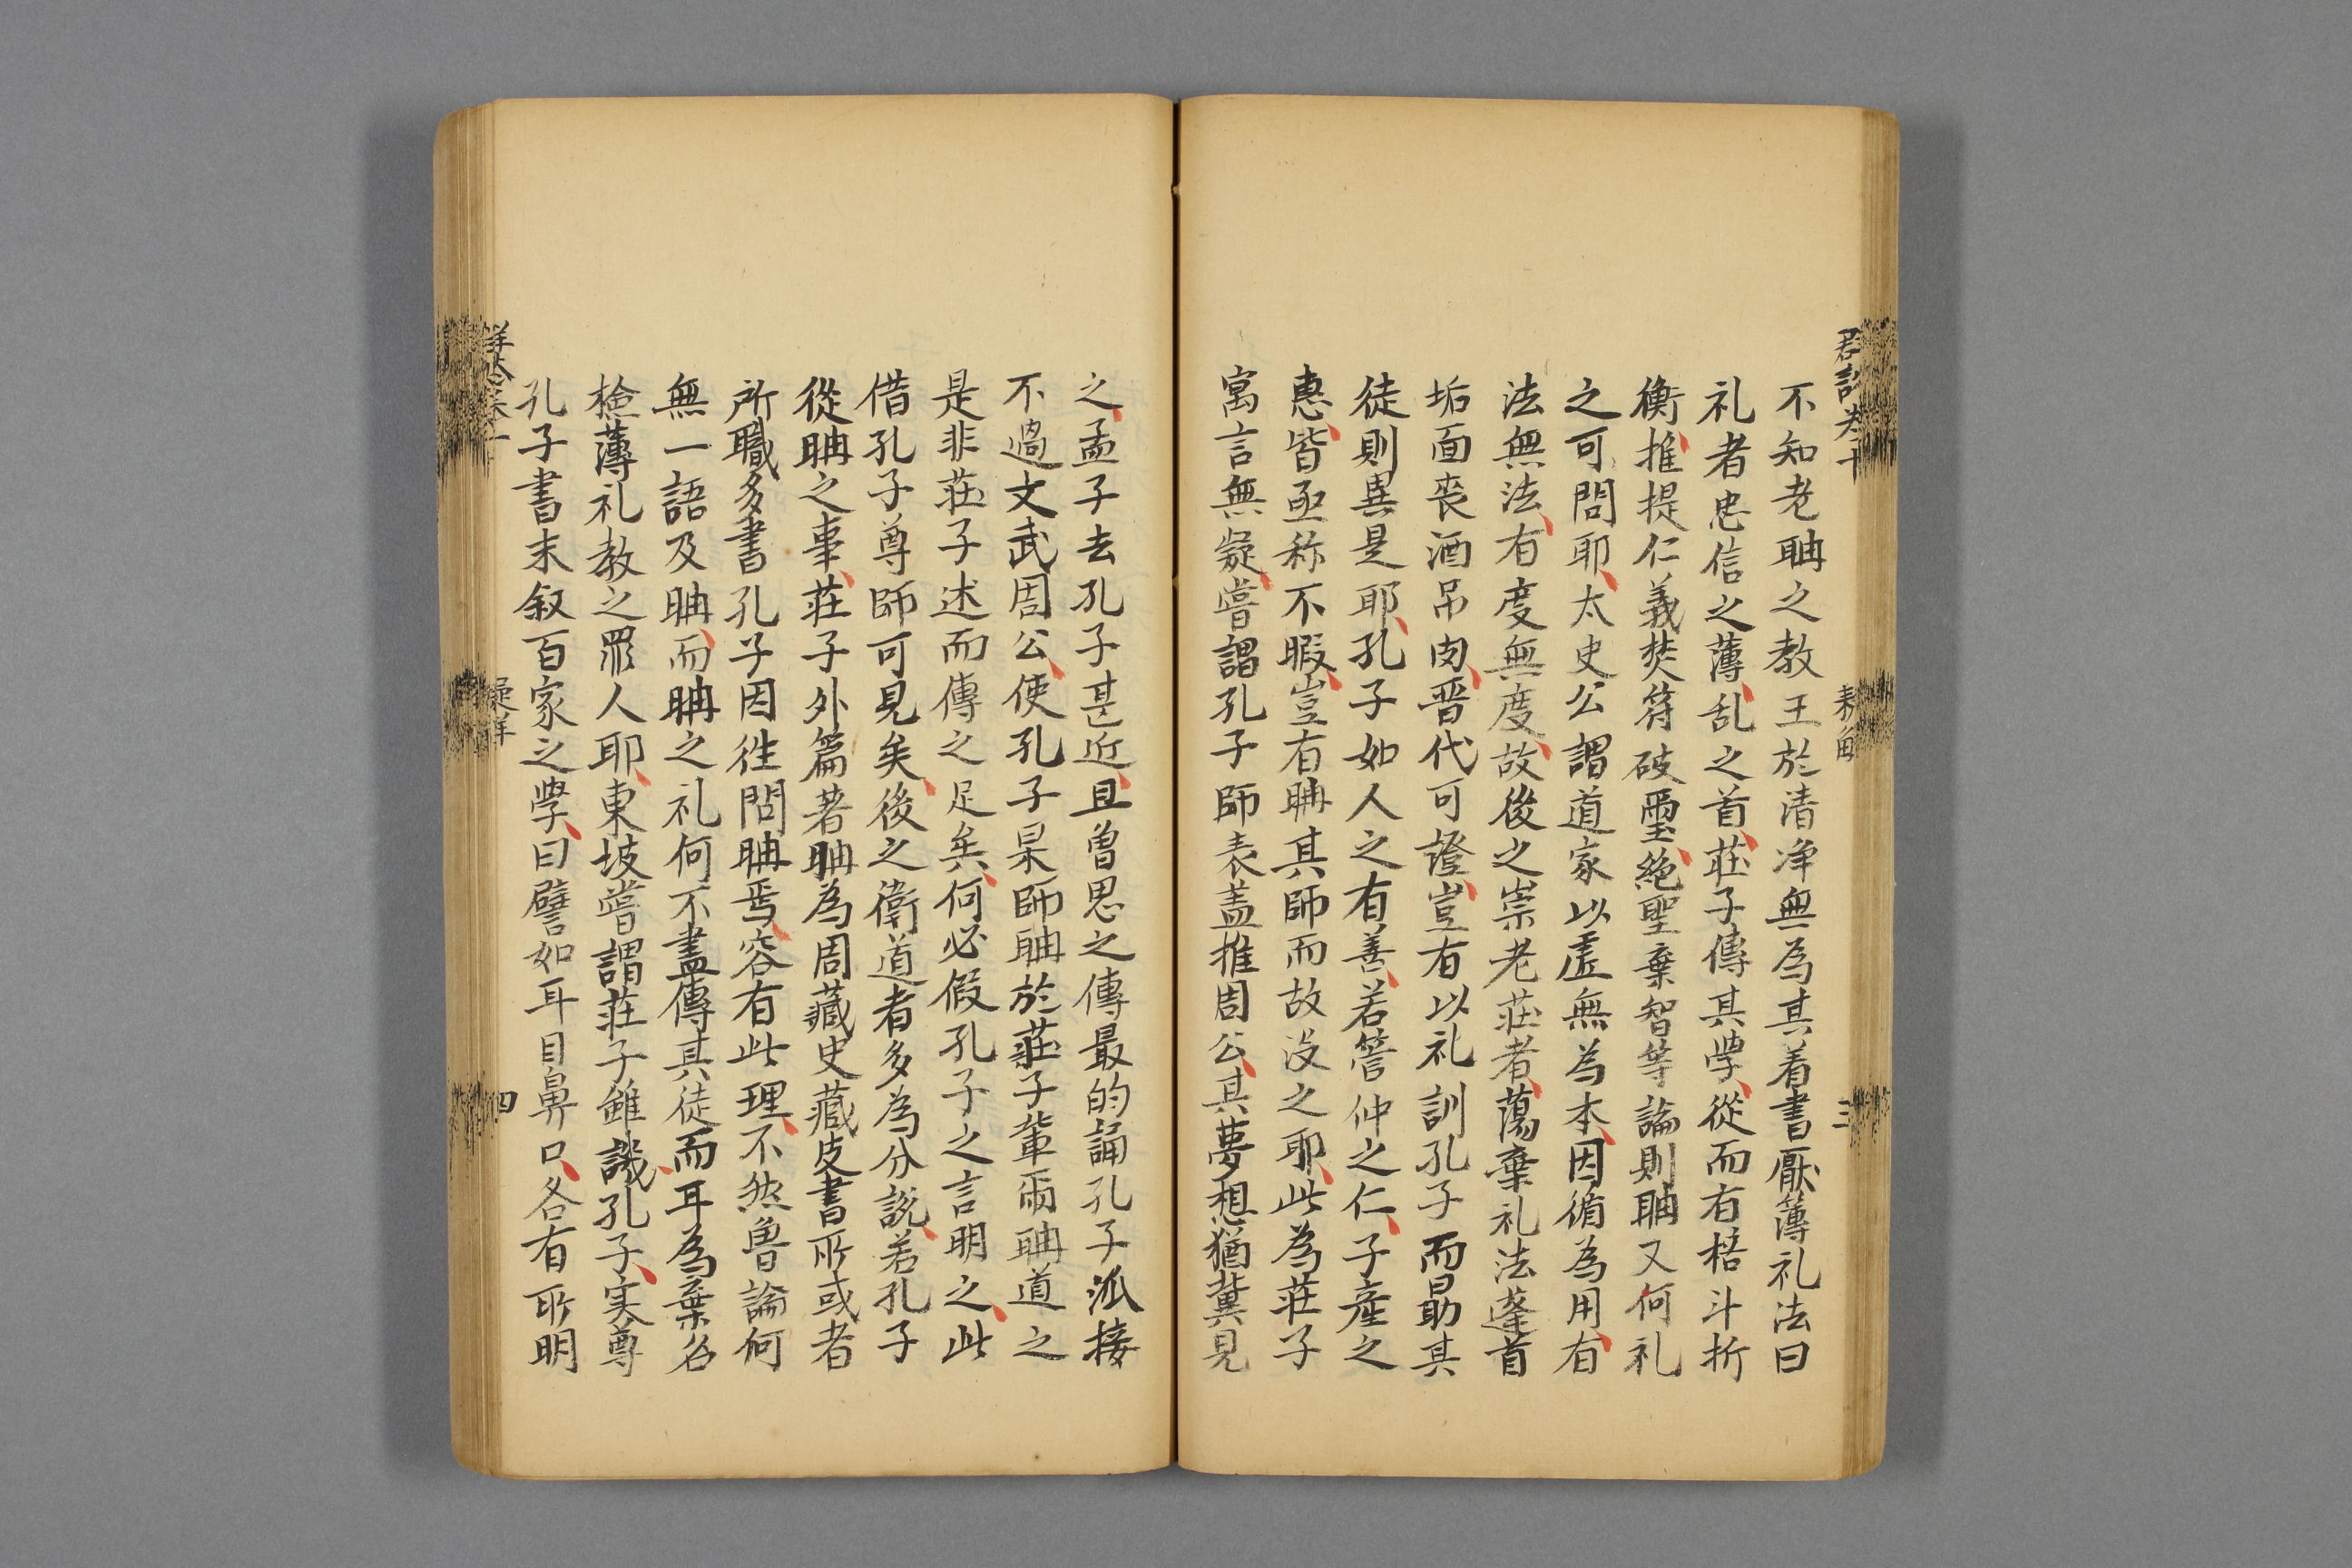 不知老聃之教王於清净無為其着書厭簿礼法曰
礼者忠信之薄乱之首莊子傳其學從而有棓斗折
衡推提仁義焚符破璽絶聖棄智等論則聃又何礼
之可問耶太史公謂道家以虚無為本因循為用有
法無法有度無度故後之崇老莊者蕩棄礼法蓬首
垢面丧酒吊肉晋代可證豈有以礼訓孔子而勗其
徒則異是耶孔子如人之有善若管仲之仁子產之
惠皆亟称不暇豈有聃其師而故没之耶此為莊子
寓言無疑嘗謂孔子師表盖推周公其夢想猶冀見
之孟子去孔子甚近且曾思之傳最的誦孔子派接
不過文武周公使孔子杲師聃於莊子輩兩聃道之
是非莊子述而傳之足矣何必假孔子之言明之此
借孔子尊師可見矣後之衛道者多為分説若孔子
從聃之事莊子外篇著聃為周藏史藏皮書所或者
所職多書孔子因徃問聃焉容有此理不然魯論何
無一語及聃而聃之礼何不盡傳其徒而耳為棄名
檢薄礼教之罪人耶東坡嘗謂莊子雖譏孔子寔尊
孔子書末叙百家之學曰譬如耳目鼻口各有所明
三
四